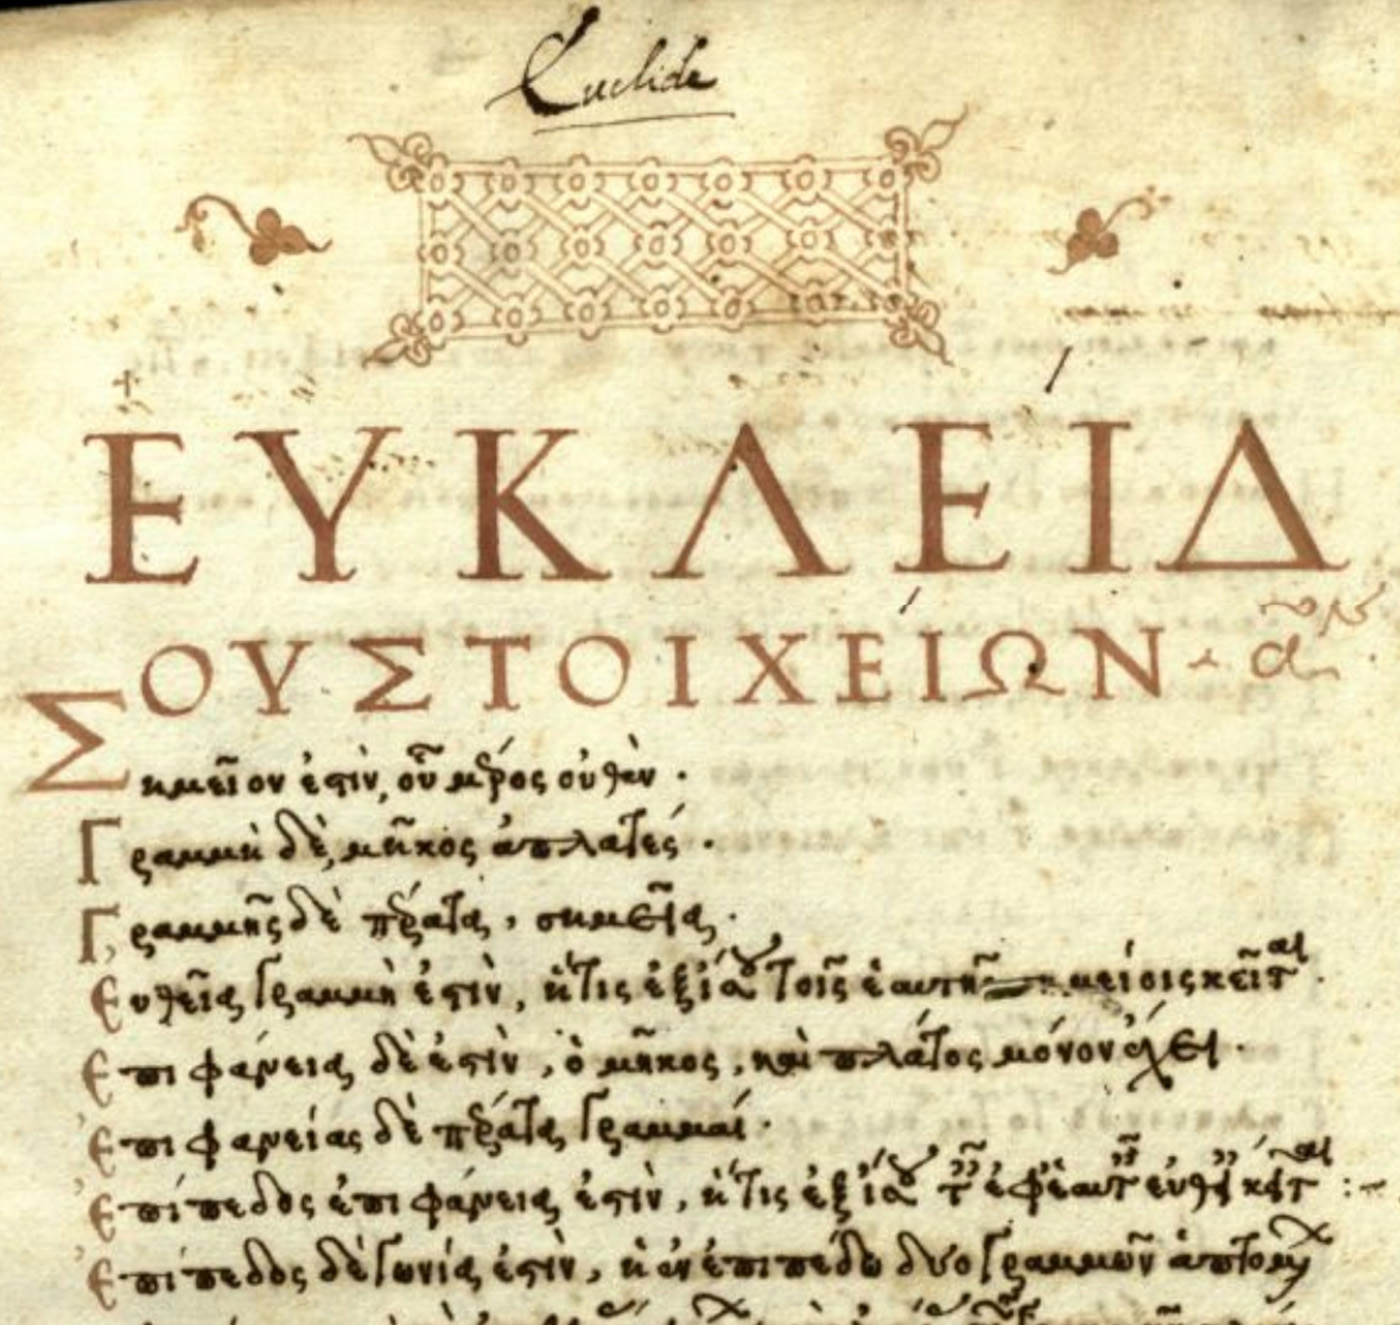 Euclide
ΕΥΚΛΕΊΔ
ΟΥ ΣΤΟΙΧΕΊΩΝ α
Σημεῖον ἐστὶν, οὗ μέρος οὐθὲν.
Γραμμὴ δὲ, μῆκος ἀπλατές.
Γραμμῆς δὲ πέρατα, σημεῖα.
Εὐθεῖα γραμμὴ ἐστὶν, ἥτις ἐξίσου τοῖς ἑαυτῆς σημείοις κεῖται.
Ἐπιφάνεια δὲ ἐστὶν, ὃ μῆκος, καὶ πλάτος μόνον ἔχει.
Ἐπιφανείας δὲ πέρατα γραμμαί.
Ἐπίπεδος ἐπιφάνεια ἐστὶν, ἥτις ἐξίσου ταῖς ἐφ' ἑαυτῆς εὐθείαις κεῖται :~
Ἐπίπεδος δὲ γωνία ἐστὶν, ἡ ἐν ἐπιπέδω δύο γραμμῶν ἁπτομένων